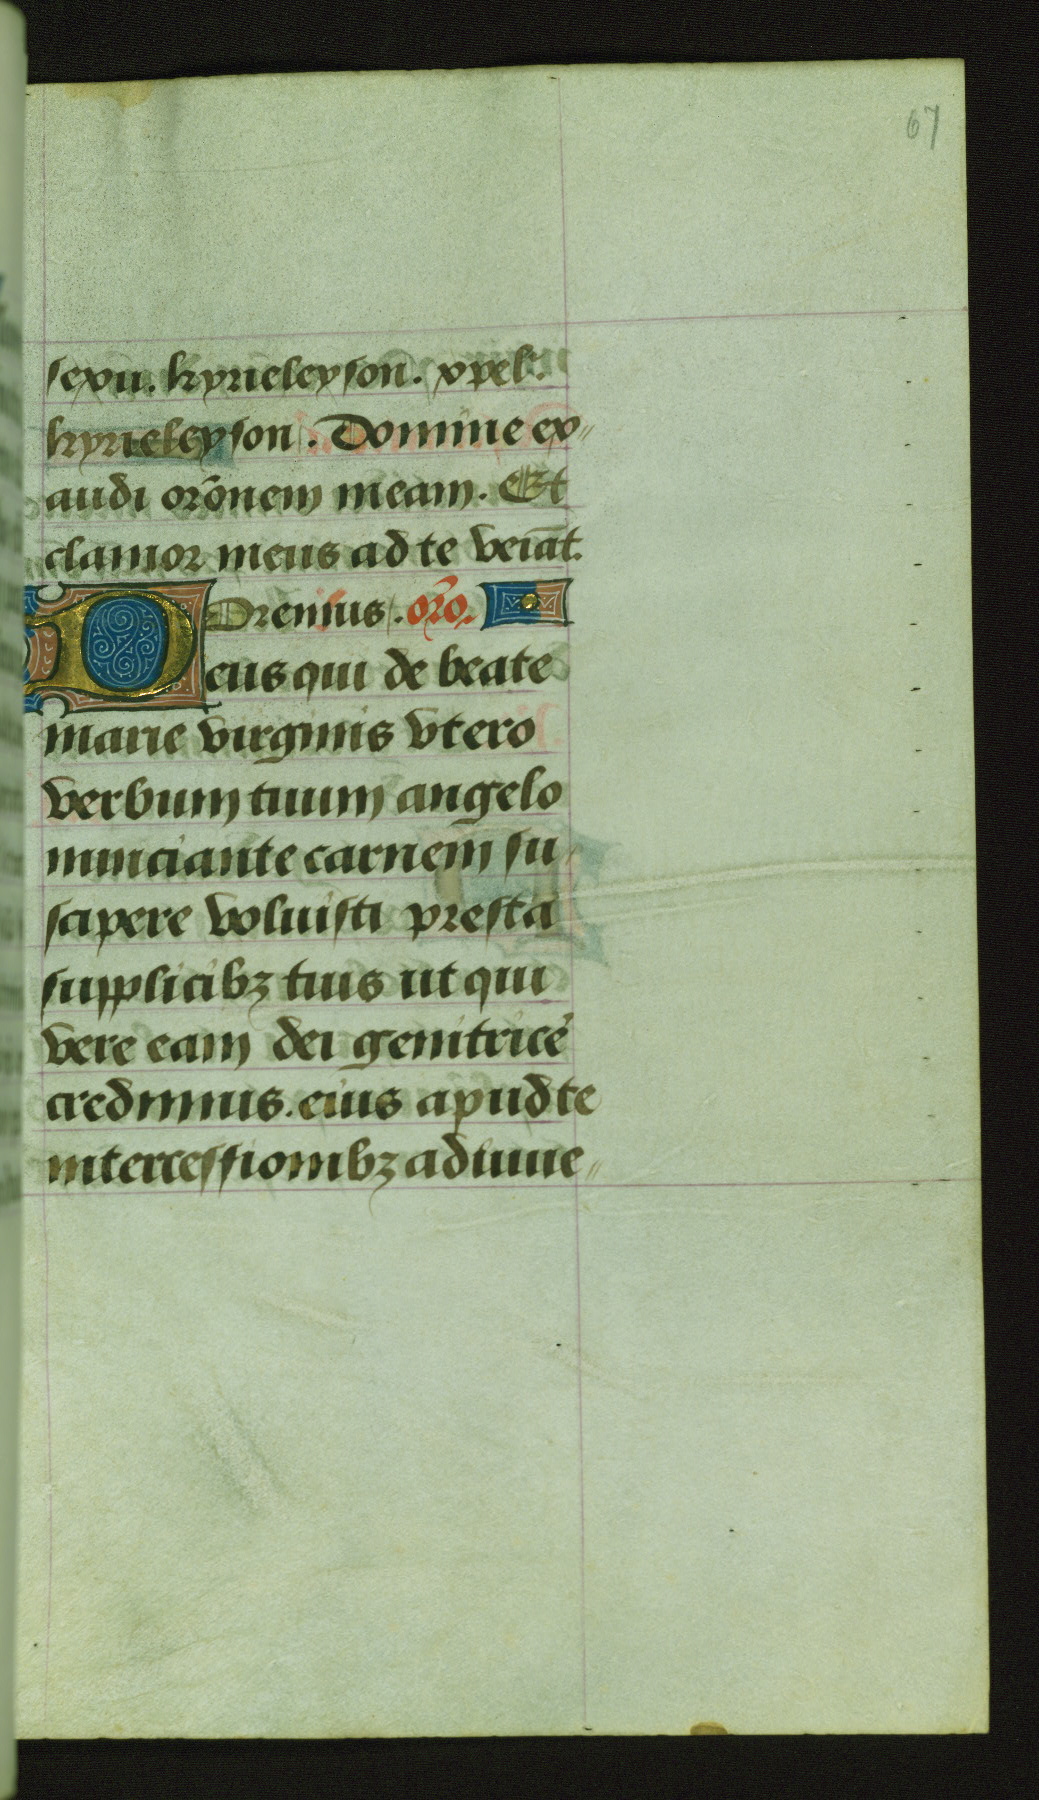 67
sexu. kyrieleyson. xpel'.
kyrieleyson. Domine ex//
audi orōnem meam. Et
clamor meus ad te veiāt.
Oremus. orō.
Deus qui de beate
marie virginis vtero
verbum tuum angelo
nunciante carnem su/
scipere voluisti presta
supplicibꝫ tuis ut qui
vere eam dei genitricē
credimus. eius apud te
intercessionibꝫ adiuue//